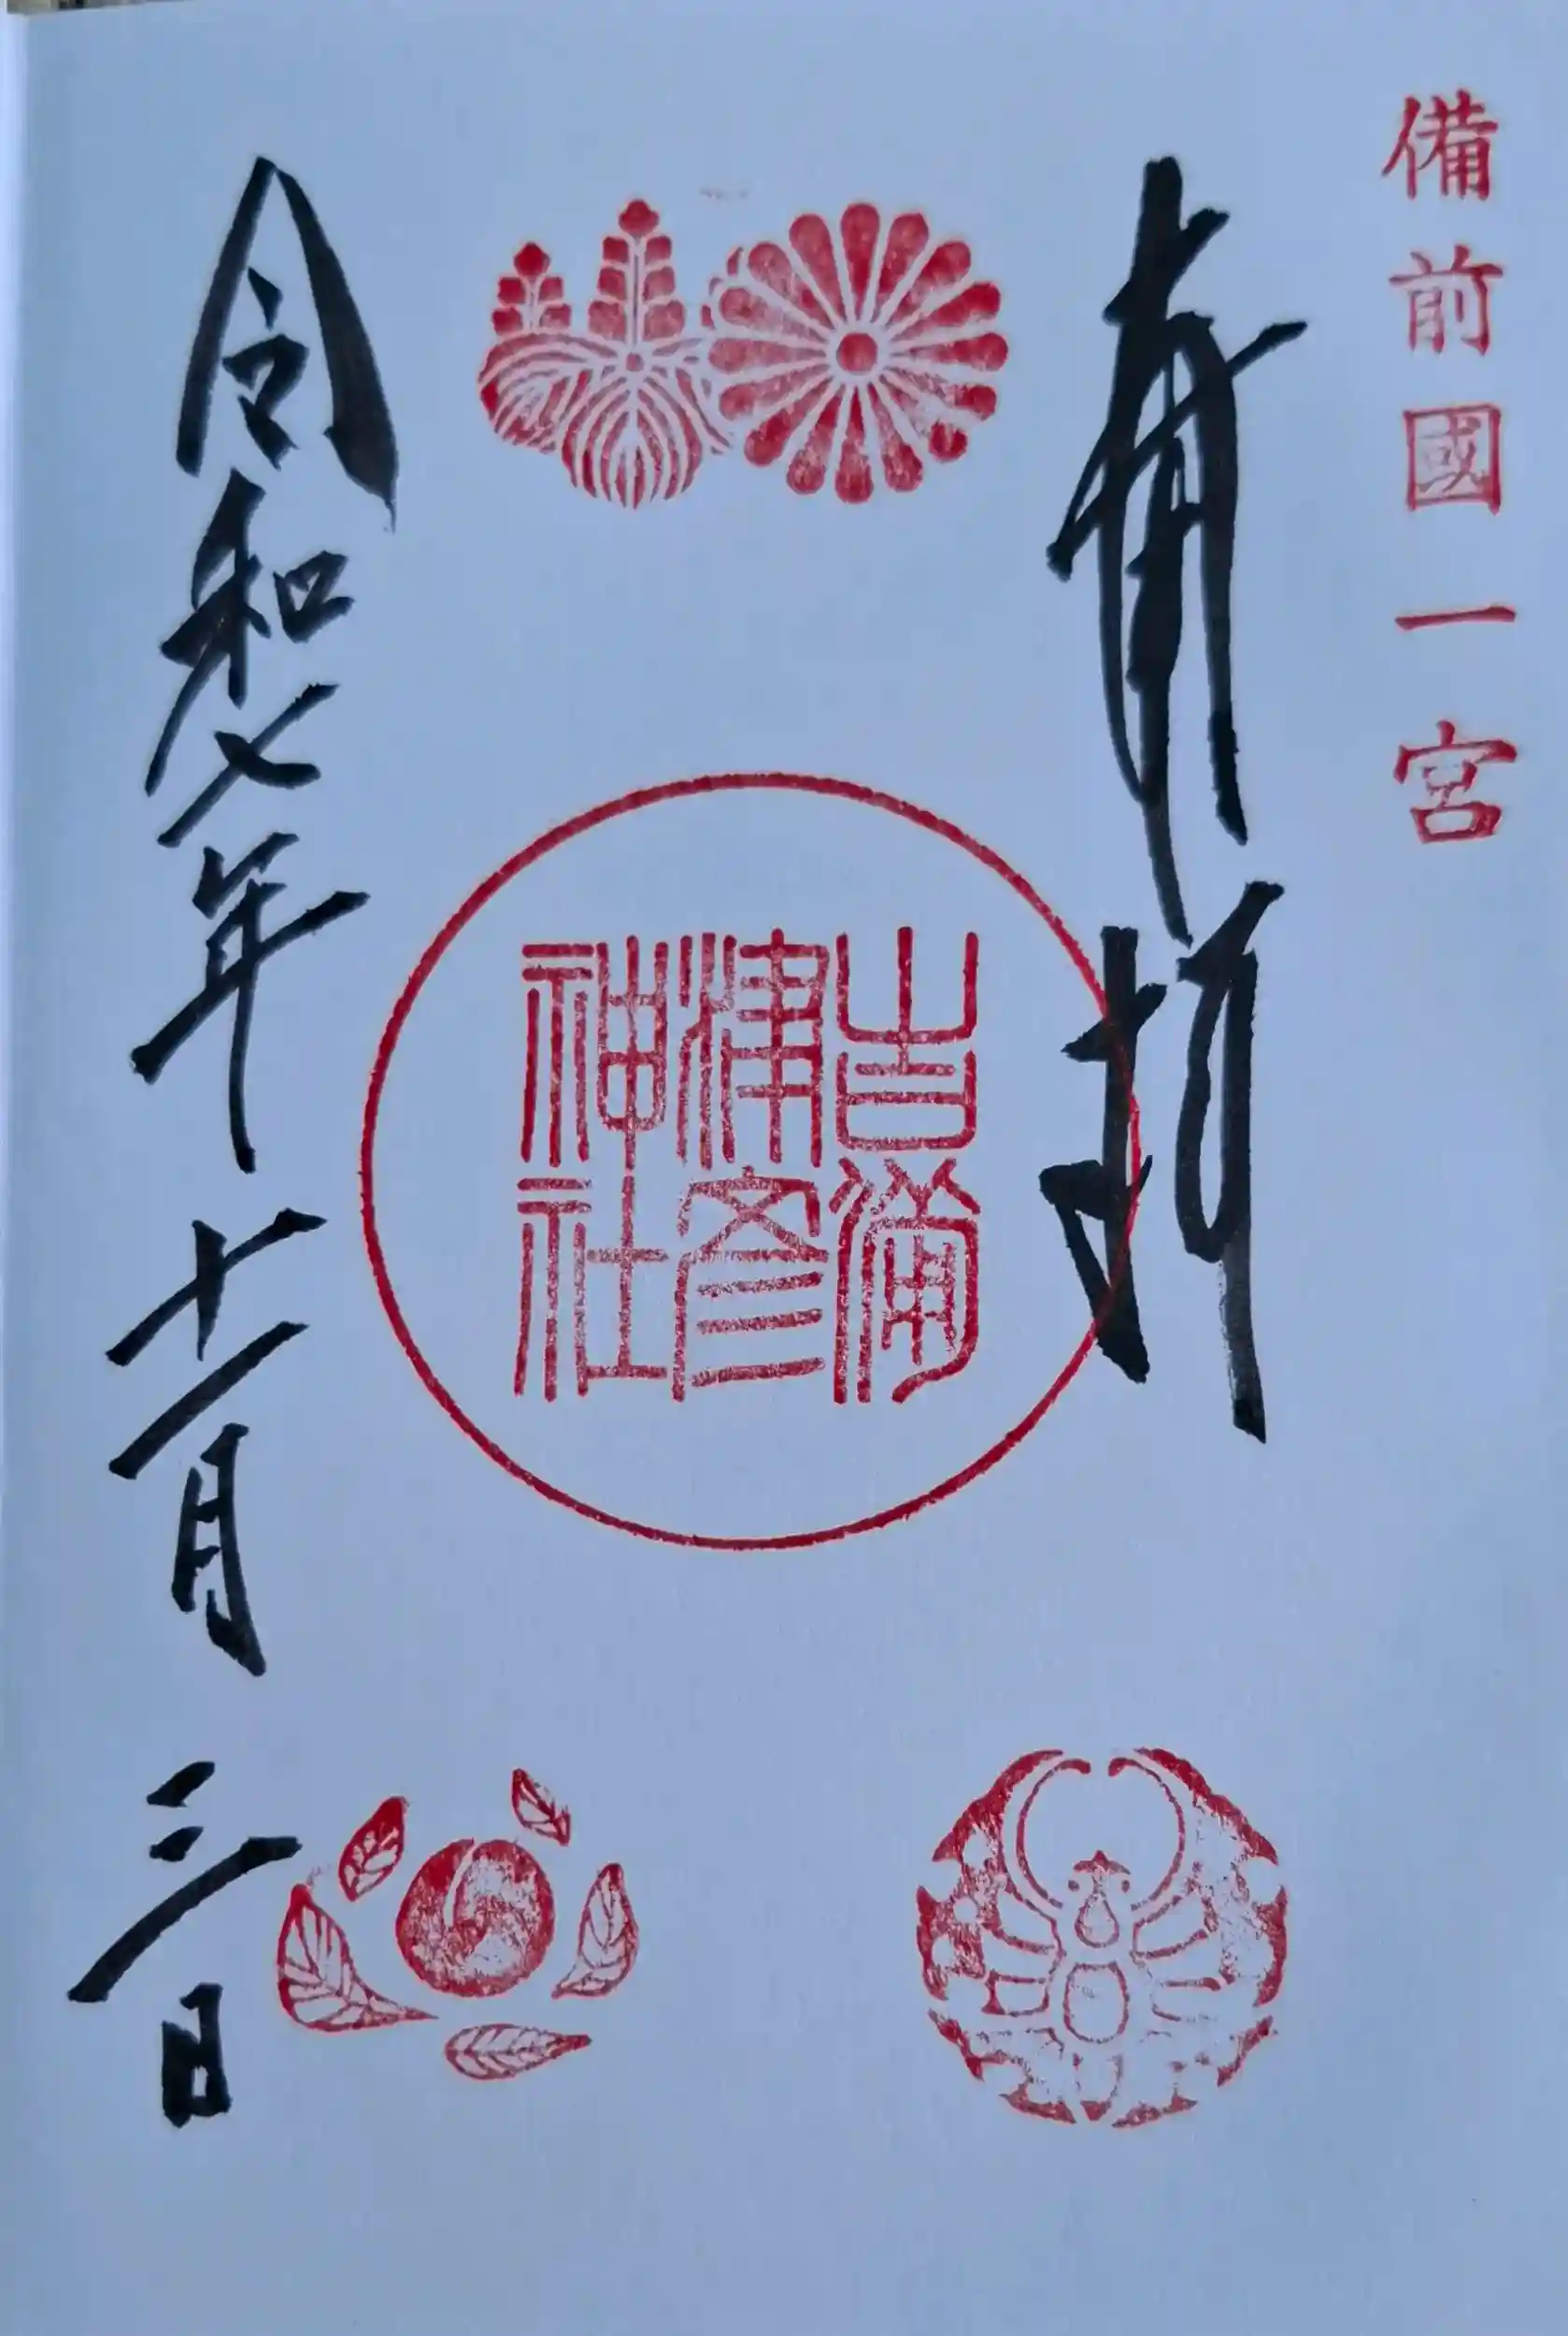 備前國一宮
奉拝
吉備津彦神社
令和七年十一月三日